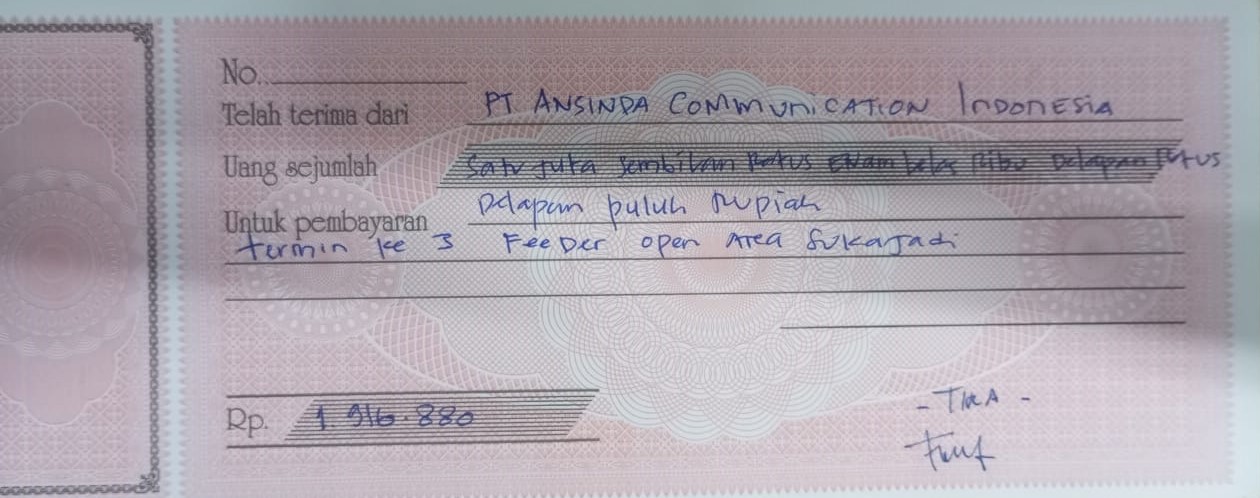 No.
Telah terima dari PT ANSINDA COMMUNICATION INDONESIA
Uang sejumlah Satu Juta Sembilan Ratus Enam belas Ribu Delapan Ratus
Delapan puluh Rupiah
Untuk pembayaran
termin ke 3 Feeder open Area Sukajadi
Rp. 1.916.880
- TIRA -